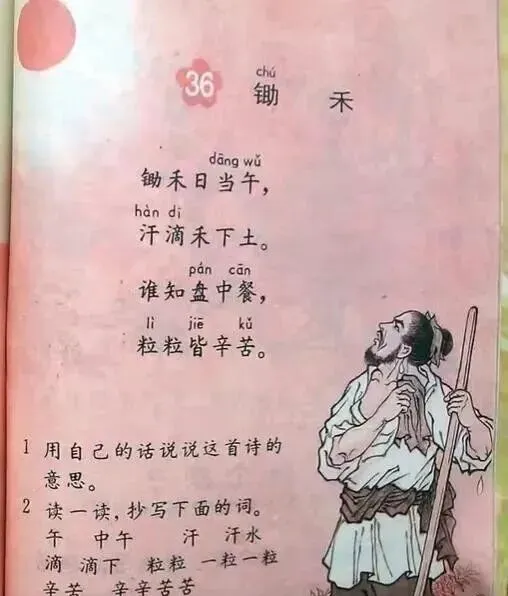 36 锄禾
chú
dāng wǔ
锄禾日当午，
hàn dī
汗滴禾下土。
pán cān
谁知盘中餐，
lì jiē kǔ
粒粒皆辛苦。
1 用自己的话说说这首诗的
意思。
2 读一读，抄写下面的词。
午 中午 汗 汗水
滴 滴下 粒粒 一粒一粒
辛苦 辛辛苦苦